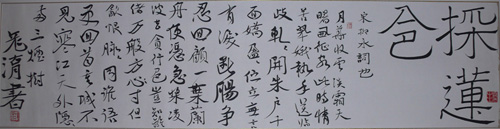 採蓮
令
宋柳永詞也
月華收雲淡霜天
曙西征客此時情
苦翠娥執手送臨
歧軋軋開朱户千
嬌面盈盈伫立無言
有淚斷腸爭
忍回顧一葉蘭
舟便恁急槳凌
波去貪行色豈知離
緒万般方寸但
飲恨脉脉同誰語
更回首重城不
見寒江天外隱
兩三煙樹
清書